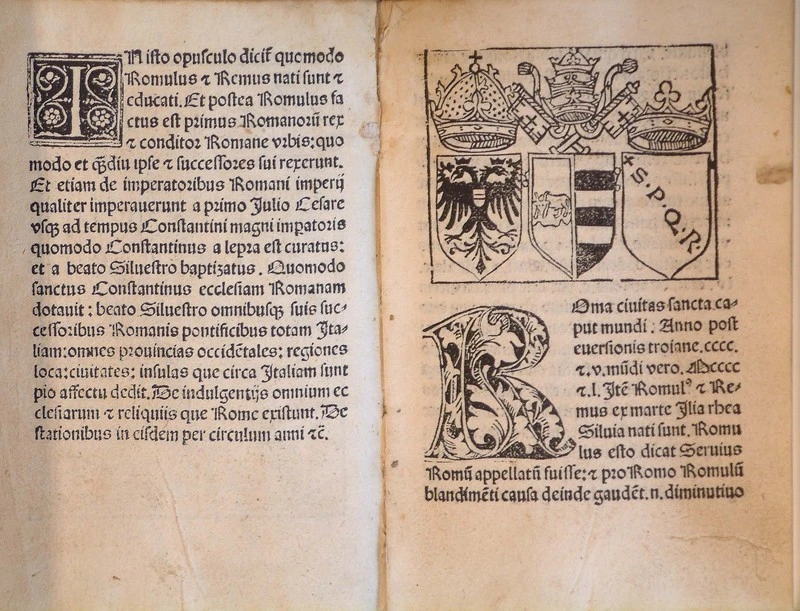 IN isto opusculo dicit̃ quomodo
Romulus ⁊ Remus nati sunt ⁊
educati. Et postea Romulus fa
ctus est primus Romanorū rex
⁊ conditor Romane vrbis: quo
modo et q̄diu ipse ⁊ successores sui rexerunt.
Et etiam de imperatoribus Romani imperij
qualiter imperauerunt a primo Julio Cesare
vsq; ad tempus Constantini magni imꝑatoris
quomodo Constantinus a lepra est curatus:
et a beato Siluestro baptizatus. Quomodo
sanctus Constantinus ecclesiam Romanam
dotauit: beato Siluestro omnibusq; suis suc-
cessoribus Romanis pontificibus totam Ita-
liam: omnes prouincias occidētales: regiones
loca: ciuitates: insulas que circa Italiam sunt
pio affectu dedit. De indulgentijs omnium ec
clesiarum ⁊ reliquiis que Rome existunt. De
stationibus in eisdem per circulum anni ⁊c̄.
S.P.Q.R.
ROma ciuitas sancta ca-
put mundi. Anno post
euersionis troiane.cccc.
⁊.v. mūdi vero. Mcccc
⁊.l. Itē Romulꝰ ⁊ Re-
mus ex marte Ilia rhea
Siluia nati sunt. Romu
lus esto dicat Seruius
Romū appellatū fuisse: ⁊ pro Romo Romulū
blandimēti causa deinde gaudēt.n. diminutiuo